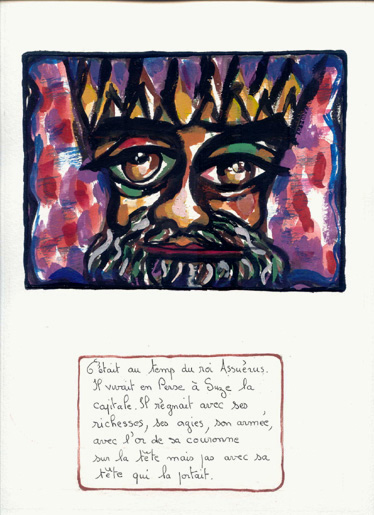 C'était au temps du roi Assuérus.
Il vivait en Perse à Suze la
capitale. Il règnait avec ses
richesses, ses orgies, son armée,
avec l'or de sa couronne
sur la tête mais pas avec sa
tête qui la portait.